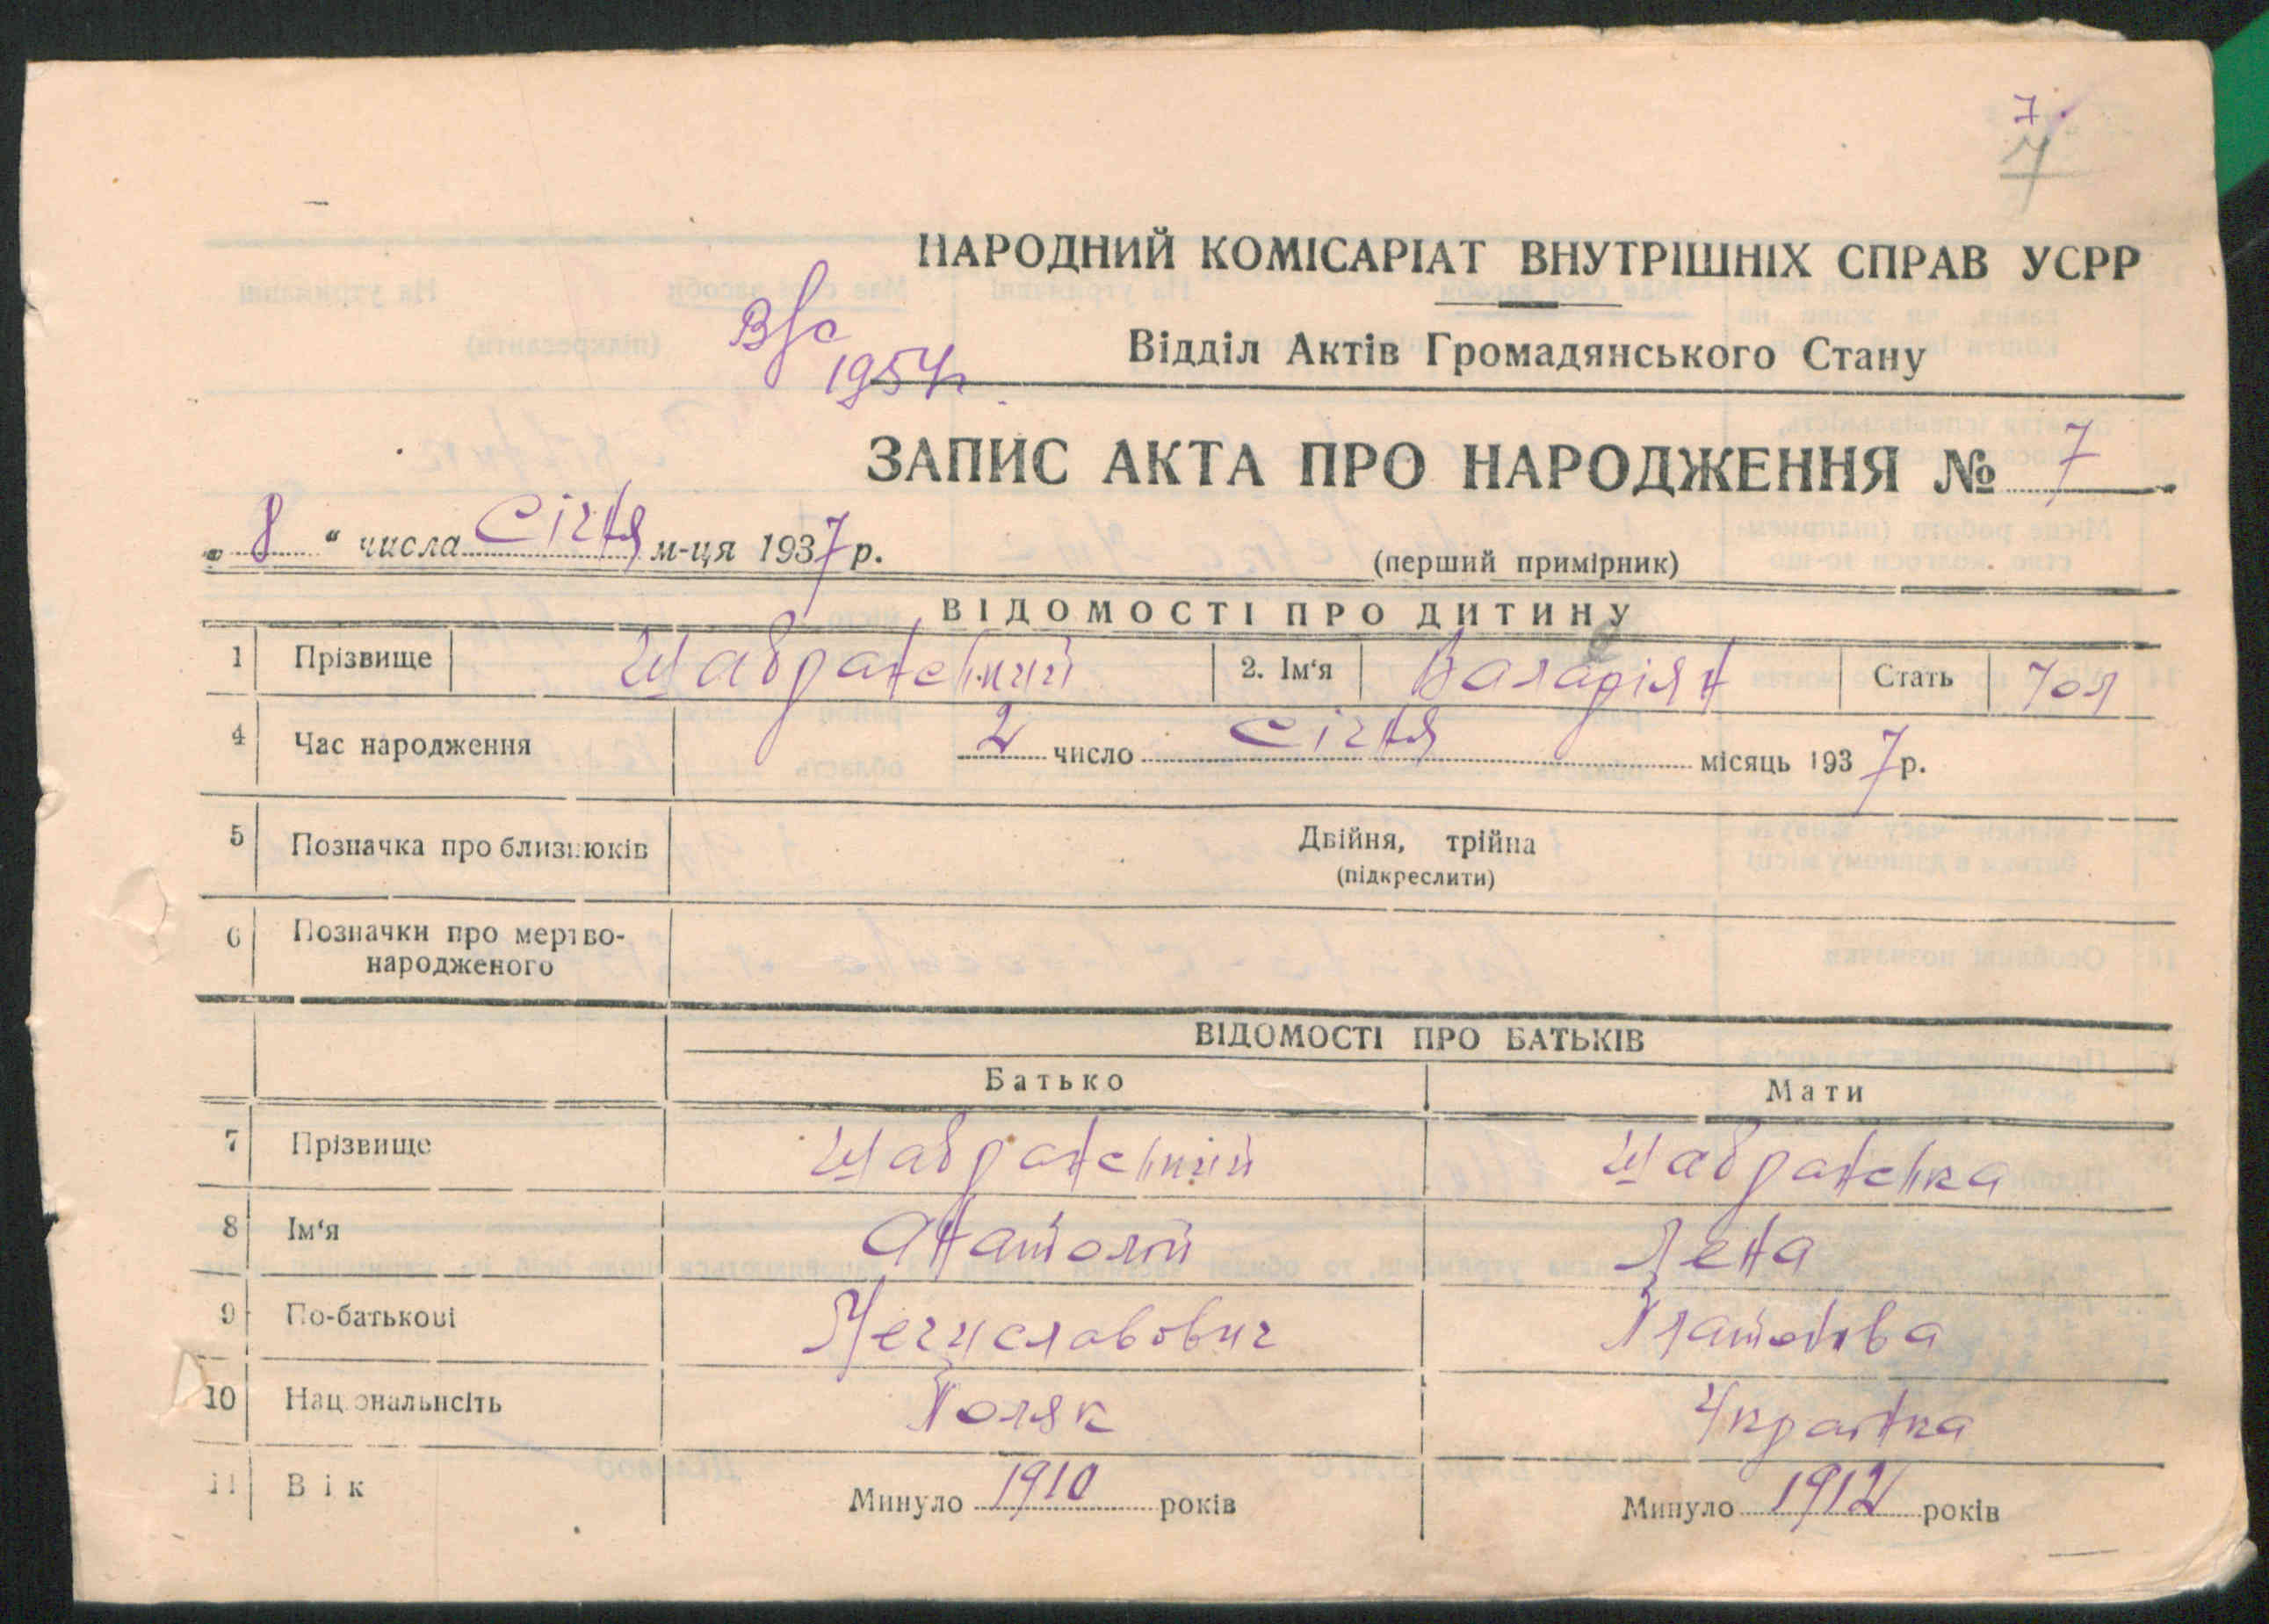 7
7
НАРОДНИЙ КОМІСАРІАТ ВНУТРІШНІХ СПРАВ УСРР
В/с
1954р
Відділ Актів Громадянського Стану
ЗАПИС АКТА ПРО НАРОДЖЕННЯ № 7
„ 8 “ числа Січня м-ця 1937 р.
(перший примірник)
ВІДОМОСТІ ПРО ДИТИНУ
1 Прізвище 2. Ім‘я Валаріян Стать чол
4 Час народження 2 число Січня місяць 1937 р.
5 Позначка про близнюків Двійня, трійна
(підкреслити)
6 Позначки про мертво-
народженого
ВІДОМОСТІ ПРО БАТЬКІВ
Батько Мати
7 Прізвище
8 Ім‘я Анатолій Лена
9 По-батькові Мечиславович Платонівна
10 Національнсіть Поляк Українка
11 Вік Минуло 1910 років Минуло 1912 років